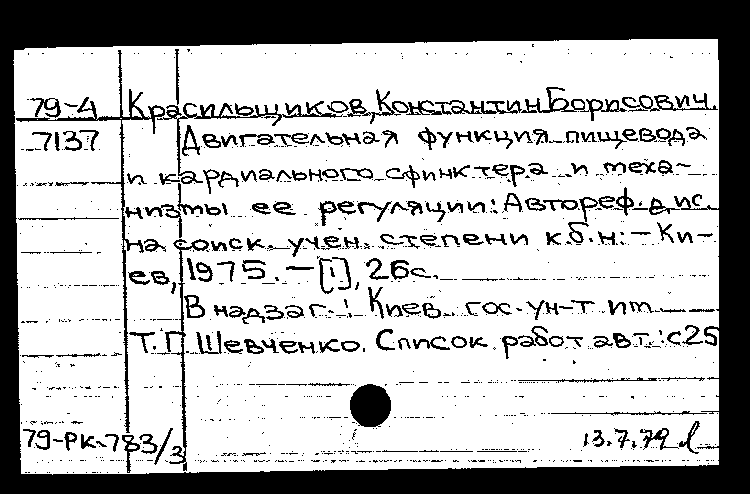 79-4 Красильщиков, Константин Борисович.
7137 Двигательная функция пищевода
и кардиального сфинктера и меха-
низмы ее регуляции: Автореф. дис.
на соиск. учен. степени к.б.н: - Ки-
ев, 1975. - [1], 26с.
В надзаг.: Киев. гос. ун-т им.
Т.Г. Шевченко. Список работ авт.: с 25
79-РК-783/3 13.7.79